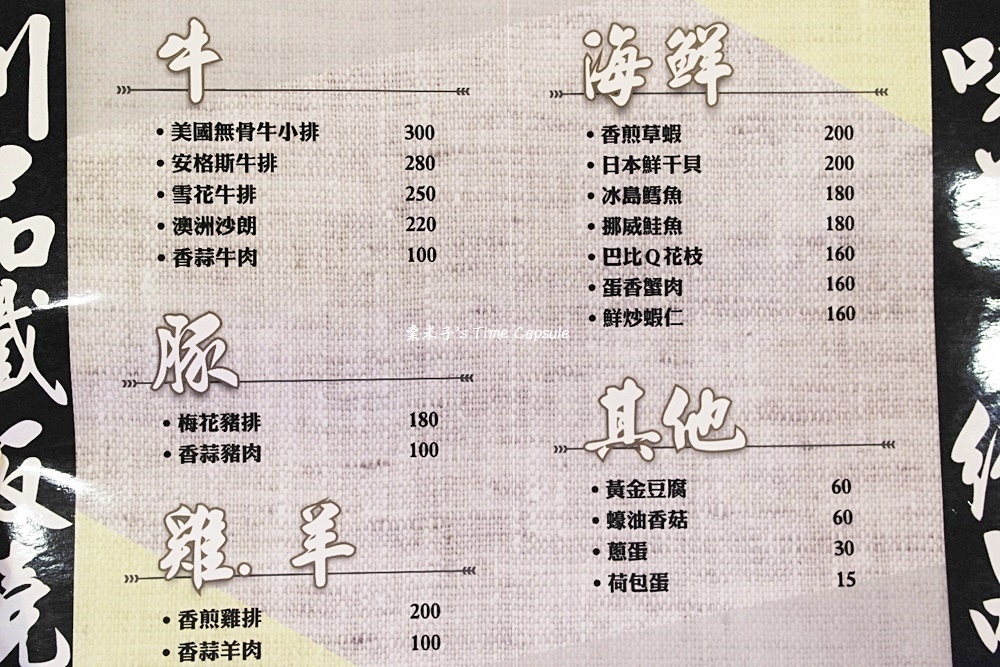 牛
美國無骨牛小排 300
安格斯牛排 280
雪花牛排 250
澳洲沙朗 220
香蒜牛肉 100
豚
梅花豬排 180
香蒜豬肉 100
雞.羊
香煎雞排 200
香蒜羊肉 100
海鮮
香煎草蝦 200
日本鮮干貝 200
冰島鱈魚 180
挪威鮭魚 180
巴比Q花枝 160
蛋香蟹肉 160
鮮炒蝦仁 160
其他
黃金豆腐 60
蠔油香菇 60
蔥蛋 30
荷包蛋 15
川品鐵板燒
's Time Capsule